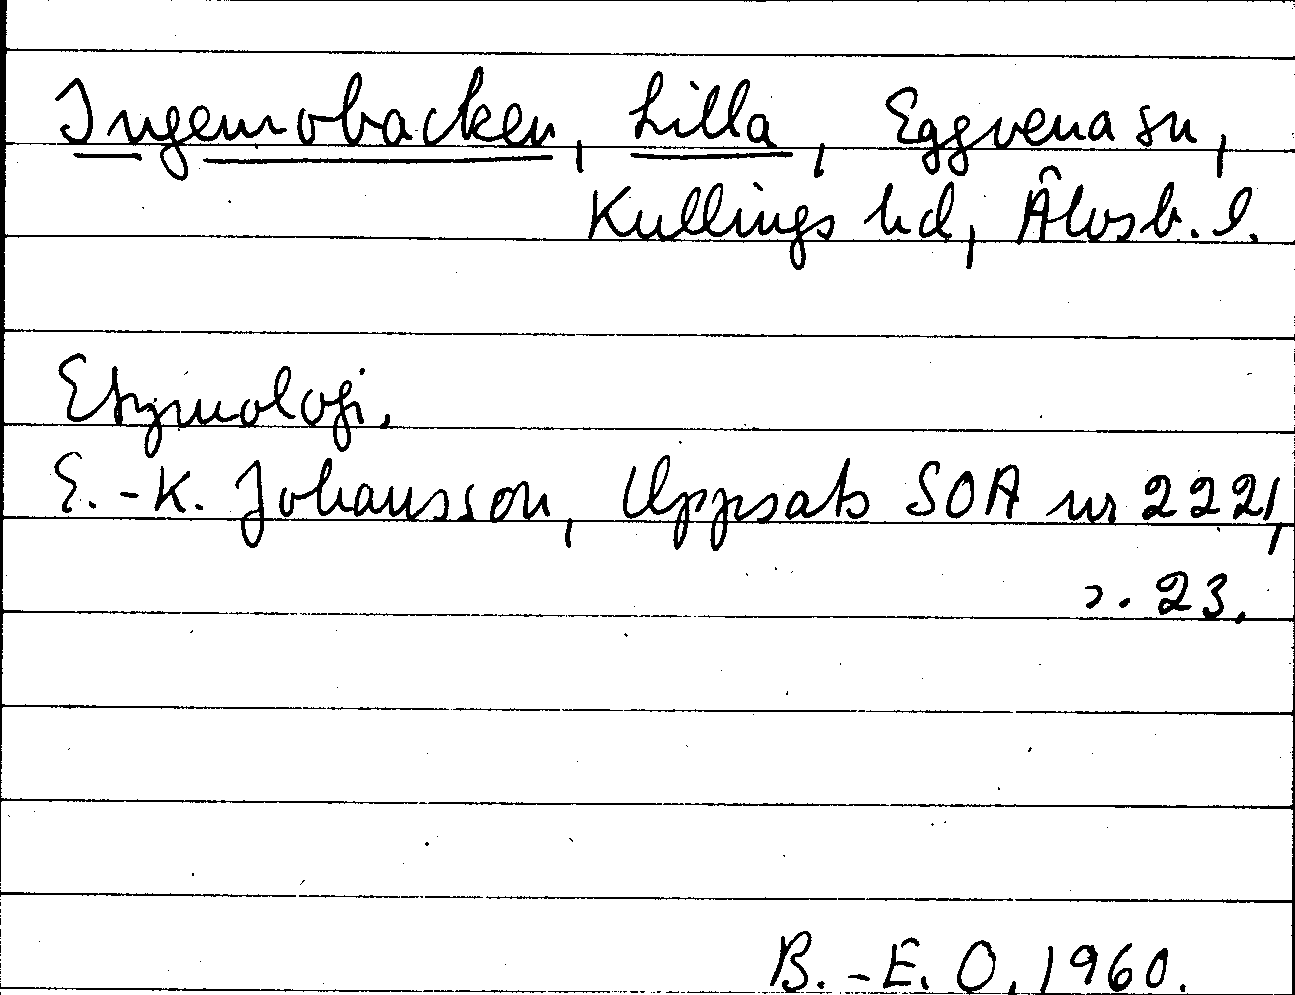 Ingemobacken, Lilla, Eggvena sn,
Kullings hd, Älvsb. l.
Etymologi.
E.-K. Johansson, Uppsats SOA nr 2221,
s. 23.
B.-E. O. 1960.